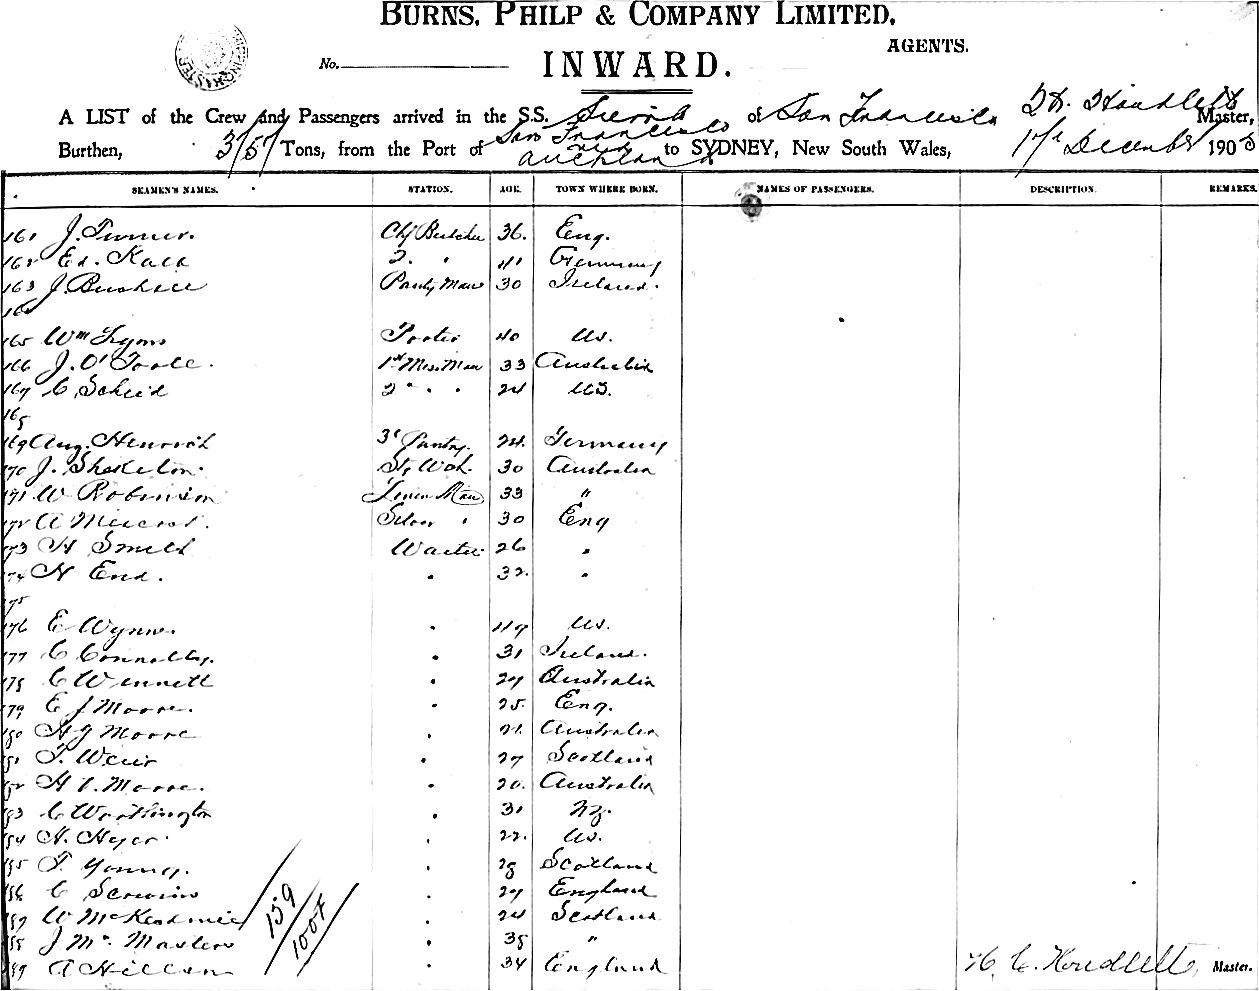 BURNS, PHILP & COMPANY LIMITED.
AGENTS.
No.
INWARD.
A LIST of the Crew and Passengers arrived in the S.S. Sierra of San Francisco Houdlett Master,
Burthen, Tons, from the Port of San Francisco Auckland to SYDNEY, New South Wales, December 190
SEAMEN'S NAMES. STATION. AGE. TOWN WHERE BORN. NAMES OF PASSENGERS. DESCRIPTION. REMARKS.
161 J. Turner. Chf Butcher 36. Eng.
162 Ed. 2. " 41 Germany
163 J. Pantry Man 30 Ireland.
164
165 Wm Lyons Porter 40 US.
166 J. O'Toole. 1st Mess Man 33 Australia
167 C Scheid 2 " " 24 US.
168
169 Aug. Henrich 3rd Pantry. 24. Germany
170 J. 30 Australia
171 W Robinson Linen Man 33 "
172 A Silver " 30 Eng
173 H Smith Waiter 26 "
174 H End. " 32. "
175
176 E Wynne. " 49 US.
177 C Connolly. " 31 Ireland.
178 C Wennett " 27 Australia
179 E J Moore. " 25. Eng.
180 H J Moore " 21. Australia
181 T. Weir " 27 Scotland
182 H Moore. " 20. Australia
183 C Worthington " 31 NZ.
184 H. " 22. US.
185 T. Young. " 28 Scotland
186 C " 27 England
187 W " 24 Scotland
188 J Mc Masters " 38 "
189 A " 34 England
159
1007
H. C. Houdlett, Master.